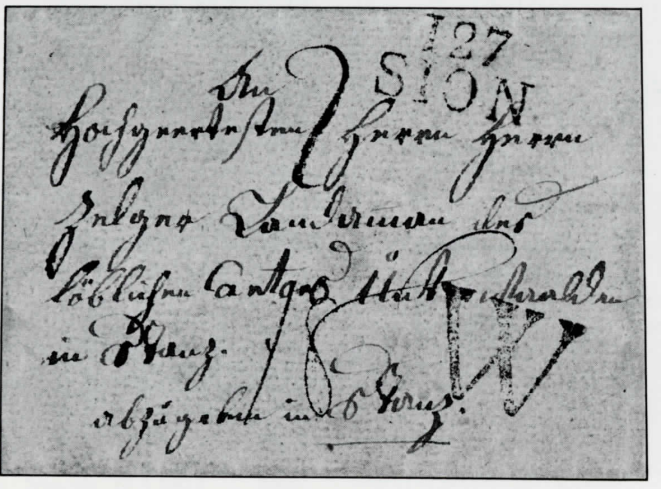 127
SION
An
Hochgeertesten Herrn Herrn
Zelger Landaman des
löblichen Cantons Unterwalden
in Stanz.
abzugeben in Stanz.
W